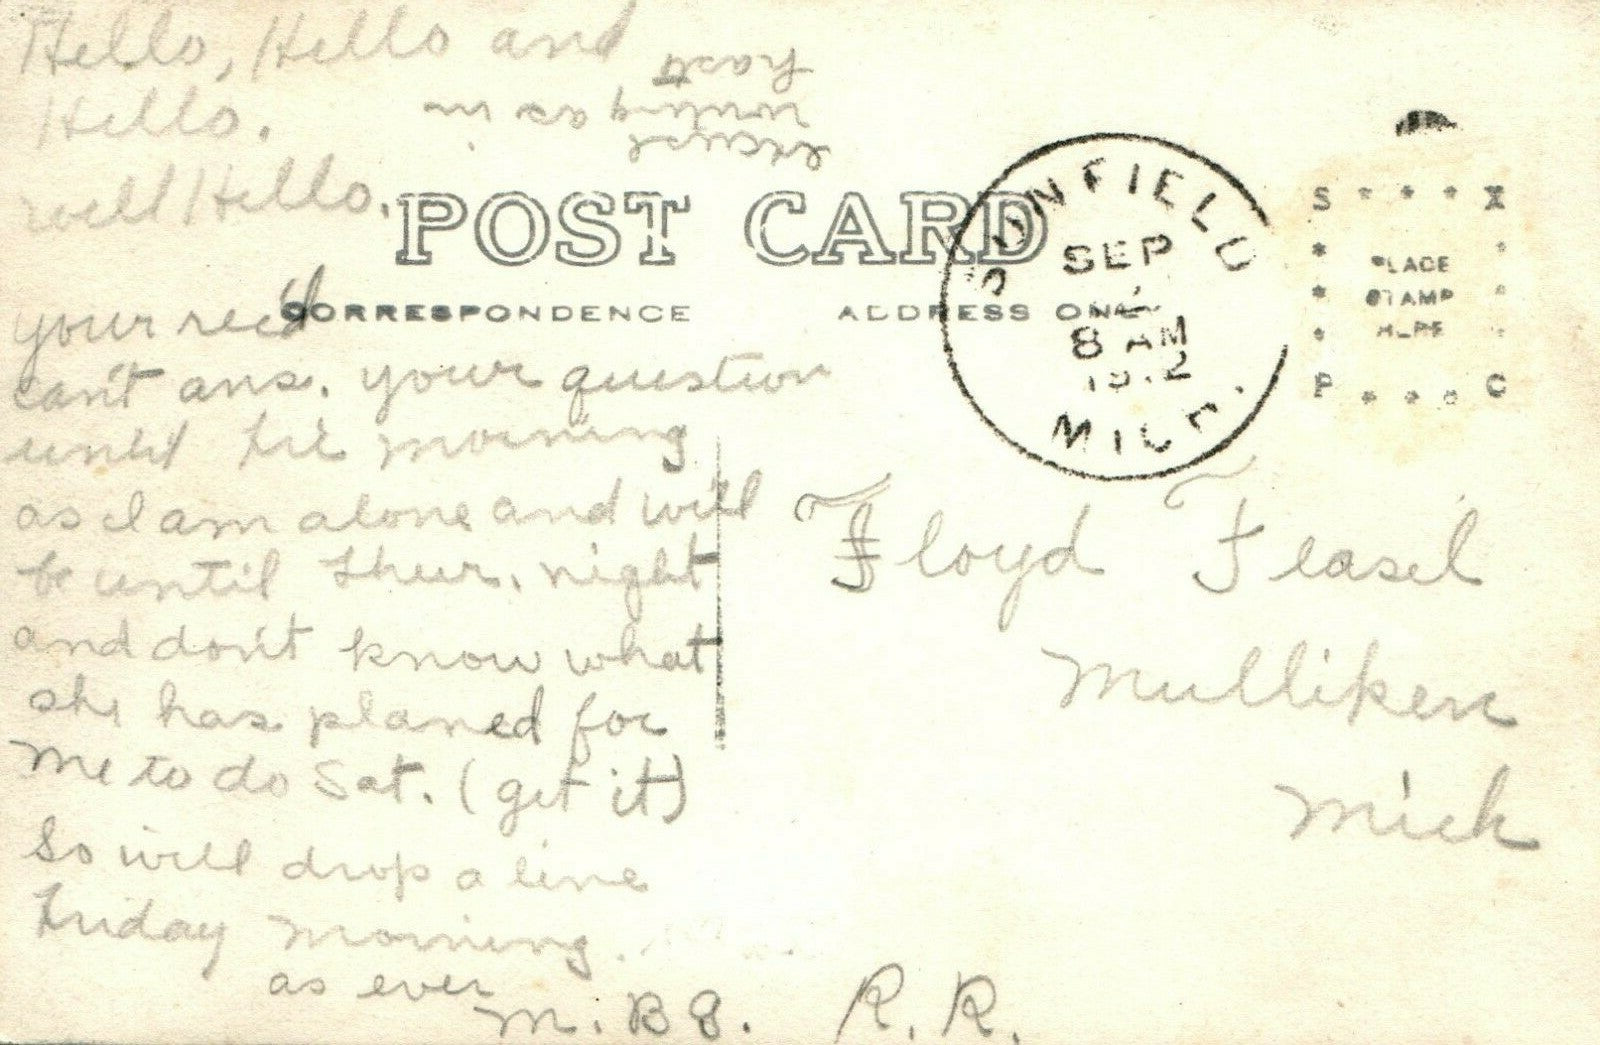 Hello, Hello and
Hello.
well Hello.
excuse
writing as in
hast
POST CARD
CORRESPONDENCE
ADDRESS ONLY
SUNFIELD
SEP
8 AM
1912
MICH.
PLACE
STAMP
HERE
your rec'd
can't ans. your question
until Fri morning
as I am alone and will
be until Thur. night
and don't know what
she has planed for
me to do Sat. (get it)
So will drop a line
Friday morning.
as ever
M. B G.
Floyd Feasel
Mulliken
Mich
R. R.